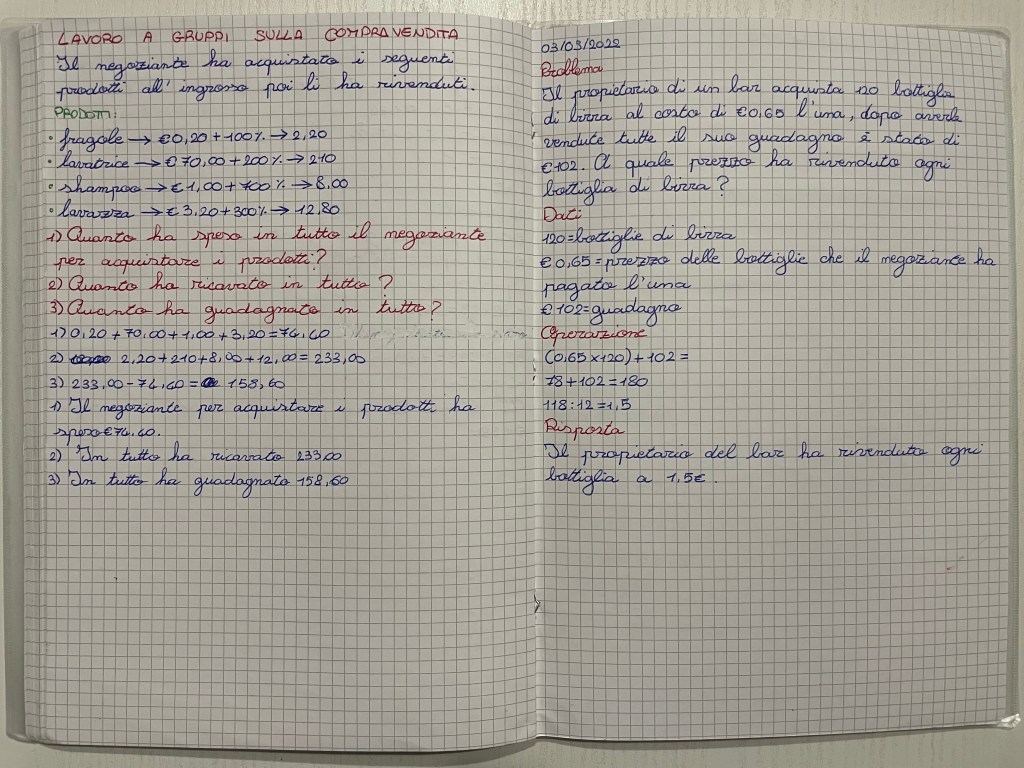 LAVORO A GRUPPI SULLA COMPRAVENDITA
Il negoziante ha acquistato i seguenti
prodotti all' ingrosso poi li ha rivenduti.
PRODOTTI:
• fragole → € 0,20 + 100% → 2,20
• lavatrice → € 70,00 + 200% → 210
• shampoo → € 1,00 + 700% → 8,00
• lavazza → € 3,20 + 300% → 12,80
1) Quanto ha speso in tutto il negoziante
per acquistare i prodotti?
2) Quanto ha ricavato in tutto?
3) Quanto ha guadagnato in tutto?
1) 0,20 + 70,00 + 1,00 + 3,20 = 74,40
2) 2,20 + 210 + 8,00 + 12,00 = 233,00
3) 233,00 - 74,40 = 158,60
1) Il negoziante per acquistare i prodotti ha
speso € 74,40.
2) In tutto ha ricavato 233,00
3) In tutto ha guadagnato 158,60
03/03/2022
Problema
Il propietario di un bar acquista 120 bottiglie
di birra al costo di € 0,65 l'una, dopo averle
vendute tutte il suo guadagno è stato di
€ 102. A quale prezzo ha rivenduto ogni
bottiglia di birra?
Dati
120 = bottiglie di birra
€ 0,65 = prezzo delle bottiglie che il negoziante ha
pagato l'una
€ 102 = guadagno
Operazione
(0,65 × 120) + 102 =
78 + 102 = 180
118 : 12 = 1,5
Risposta
Il propietario del bar ha rivenduto ogni
bottiglia a 1,5€.